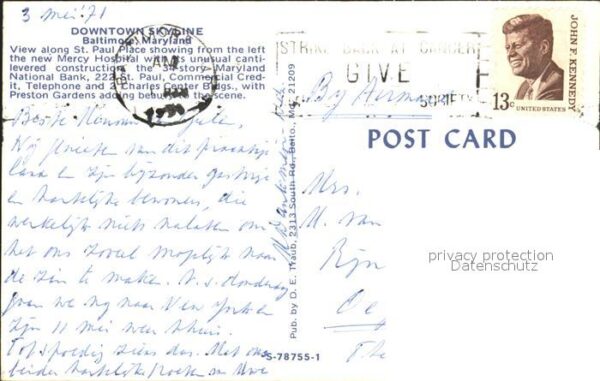 3 mei '71
DOWNTOWN SKYLINE
Baltimore, Maryland
View along St. Paul Place showing from the left
the new Mercy Hospital with its unusual canti-
levered construction, the 34-story Maryland
National Bank, 222 St. Paul, Commercial Cred-
it, Telephone and 2 Charles Center Bldgs., with
Preston Gardens adding beauty to the scene.
AM
STRIKE BACK AT CANCER
GIVE
SOCIETY
JOHN F. KENNEDY
13c
UNITED STATES
By Airmail
POST CARD
Beste
Wij genieten van dit prachtige
land en zijn bijzonder gastvrije
en hartelijke bewoners, die
werkelijk niets nalaten om
het ons zoveel mogelijk naar
de zin te maken. A.s. donderdag
gaan we nog naar New York en
zijn 11 mei weer thuis.
Tot spoedig ziens dus. Met ons
beider hartelijke groeten
Mrs.
M. van
Rijn
Pub. by D. E. Traub, 2313 South Rd., Balto., Md. 21209
S-78755-1
privacy protection
Datenschutz